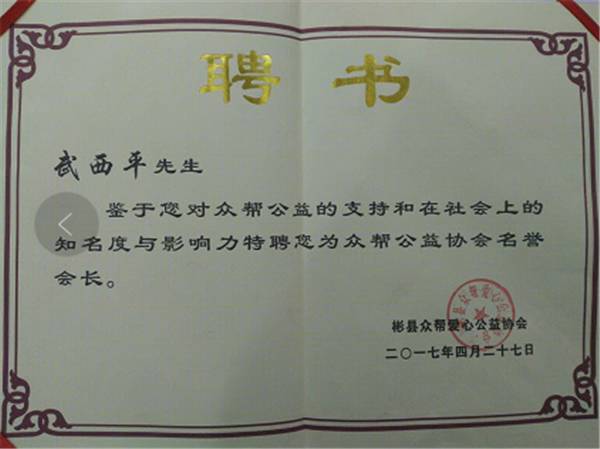 聘书
武西平先生
鉴于您对众帮公益的支持和在社会上的
知名度与影响力特聘您为众帮公益协会名誉
会长。
彬县众帮爱心公益协会
二〇一七年四月二十七日